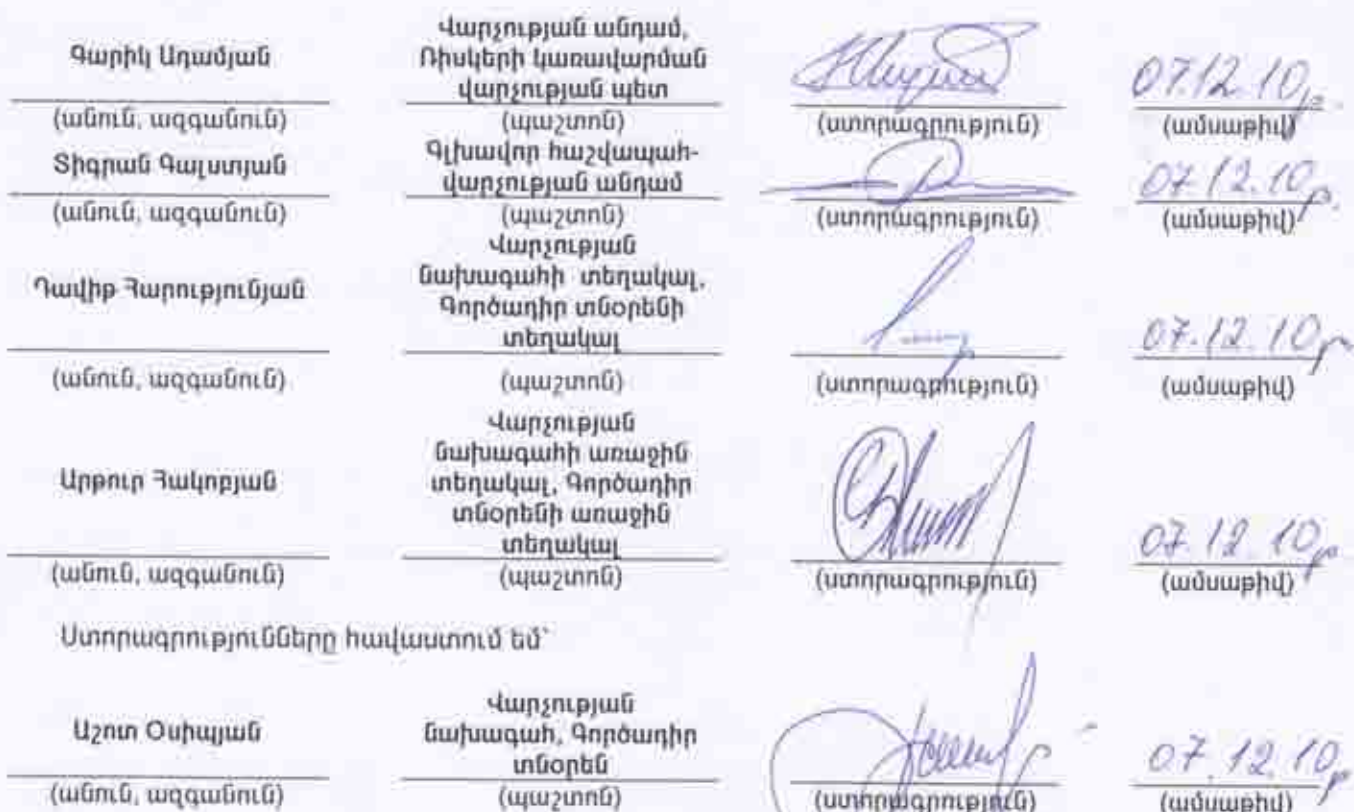 Գարիկ Ադամյան
Վարչության անդամ,
Ռիսկերի կառավարման
վարչության պետ
07.12.10թ.
(անուն, ազգանուն)
(պաշտոն)
(ստորագրություն)
(ամսաթիվ)
Տիգրան Գալստյան
Գլխավոր հաշվապահ-
վարչության անդամ
07.12.10թ.
(անուն, ազգանուն)
(պաշտոն)
(ստորագրություն)
(ամսաթիվ)
Դավիթ Հարությունյան
Վարչության
նախագահի տեղակալ,
Գործադիր տնօրենի
տեղակալ
07.12.10թ
(անուն, ազգանուն)
(պաշտոն)
(ստորագրություն)
(ամսաթիվ)
Արթուր Հակոբյան
Վարչության
նախագահի առաջին
տեղակալ, Գործադիր
տնօրենի առաջին
տեղակալ
07.12.10թ
(անուն, ազգանուն)
(պաշտոն)
(ստորագրություն)
(ամսաթիվ)
Ստորագրությունները հավաստում եմ՝
Աշոտ Օսիպյան
Վարչության
նախագահ, Գործադիր
տնօրեն
07.12.10թ
(անուն, ազգանուն)
(պաշտոն)
(ստորագրություն)
(ամսաթիվ)